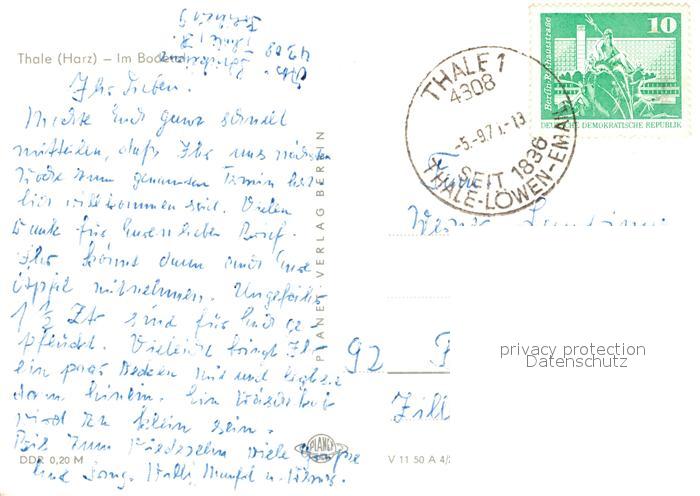 Thale (Harz) – Im Bodetal
4308
Thale/H.
Ihr Lieben.
Möchte Euch ganz schnell
mitteilen, daß Ihr uns nächste
Woche zum genannten Termin herz-
lich willkommen seid. Vielen
Dank für Euren lieben Brief.
Ihr könnt dann auch
Äpfel mitnehmen. Ungefähr
1 ½ Ztr sind für Euch ge
pflückt. Vielleicht bringt Ihr
ein paar Decken mit und
dann hinein. Ein
wird zu klein sein.
Bis zum Wiedersehen viele Grüße
und
DDR 0,20 M
PLANET-VERLAG BERLIN
PLANET
V 11 50 A 4/
THALE 1
4308
-5.-9.7
-13
SEIT 1836
THALE-LÖWEN-EMAIL
Berlin-Rathausstraße
10
DEUTSCHE DEMOKRATISCHE REPUBLIK
Fam.
Werner
92
privacy protection
Datenschutz